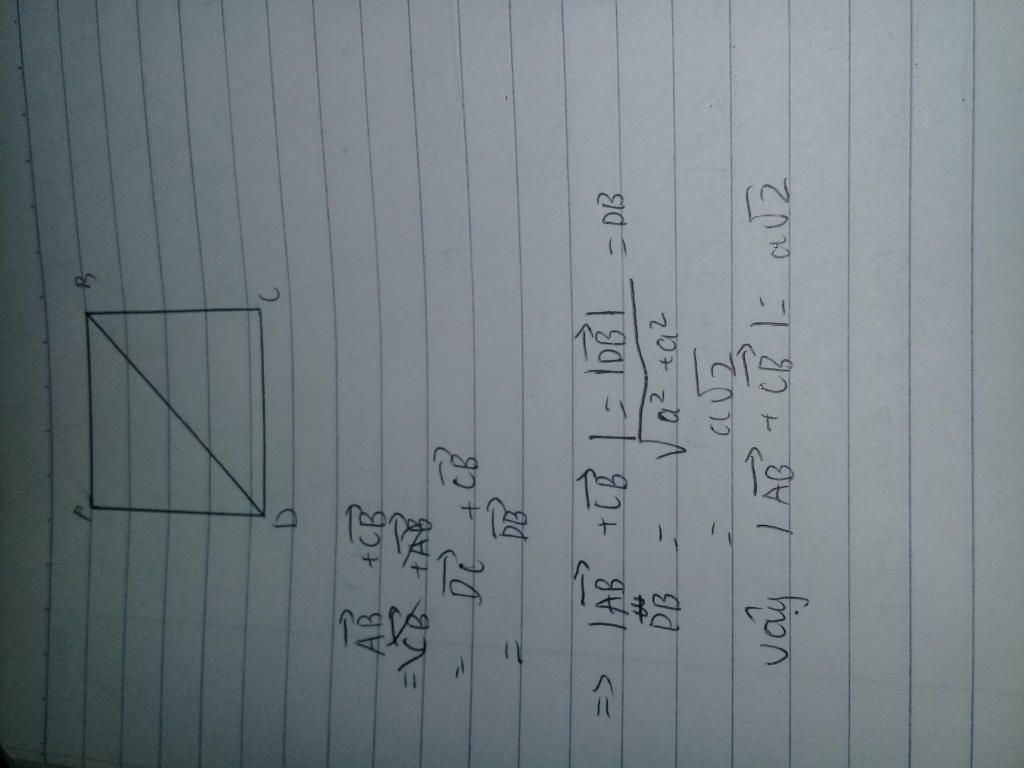 A B
D C
AB→ + CB→
= CB→ + AB→
= DC→ + CB→
= DB→
=> |AB→ + CB→| = |DB→| = DB
DB = √a² + a²
= a√2
vậy |AB→ + CB→| = a√2